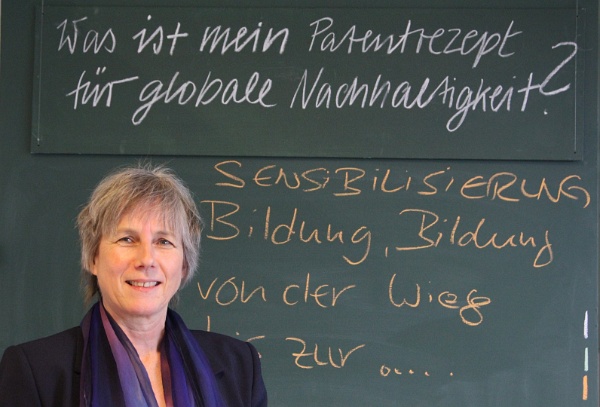 Was ist mein Patentrezept
für globale Nachhaltigkeit?
SENSIBILISIERUNG
Bildung, Bildung
von der Wiege
bis zur .....